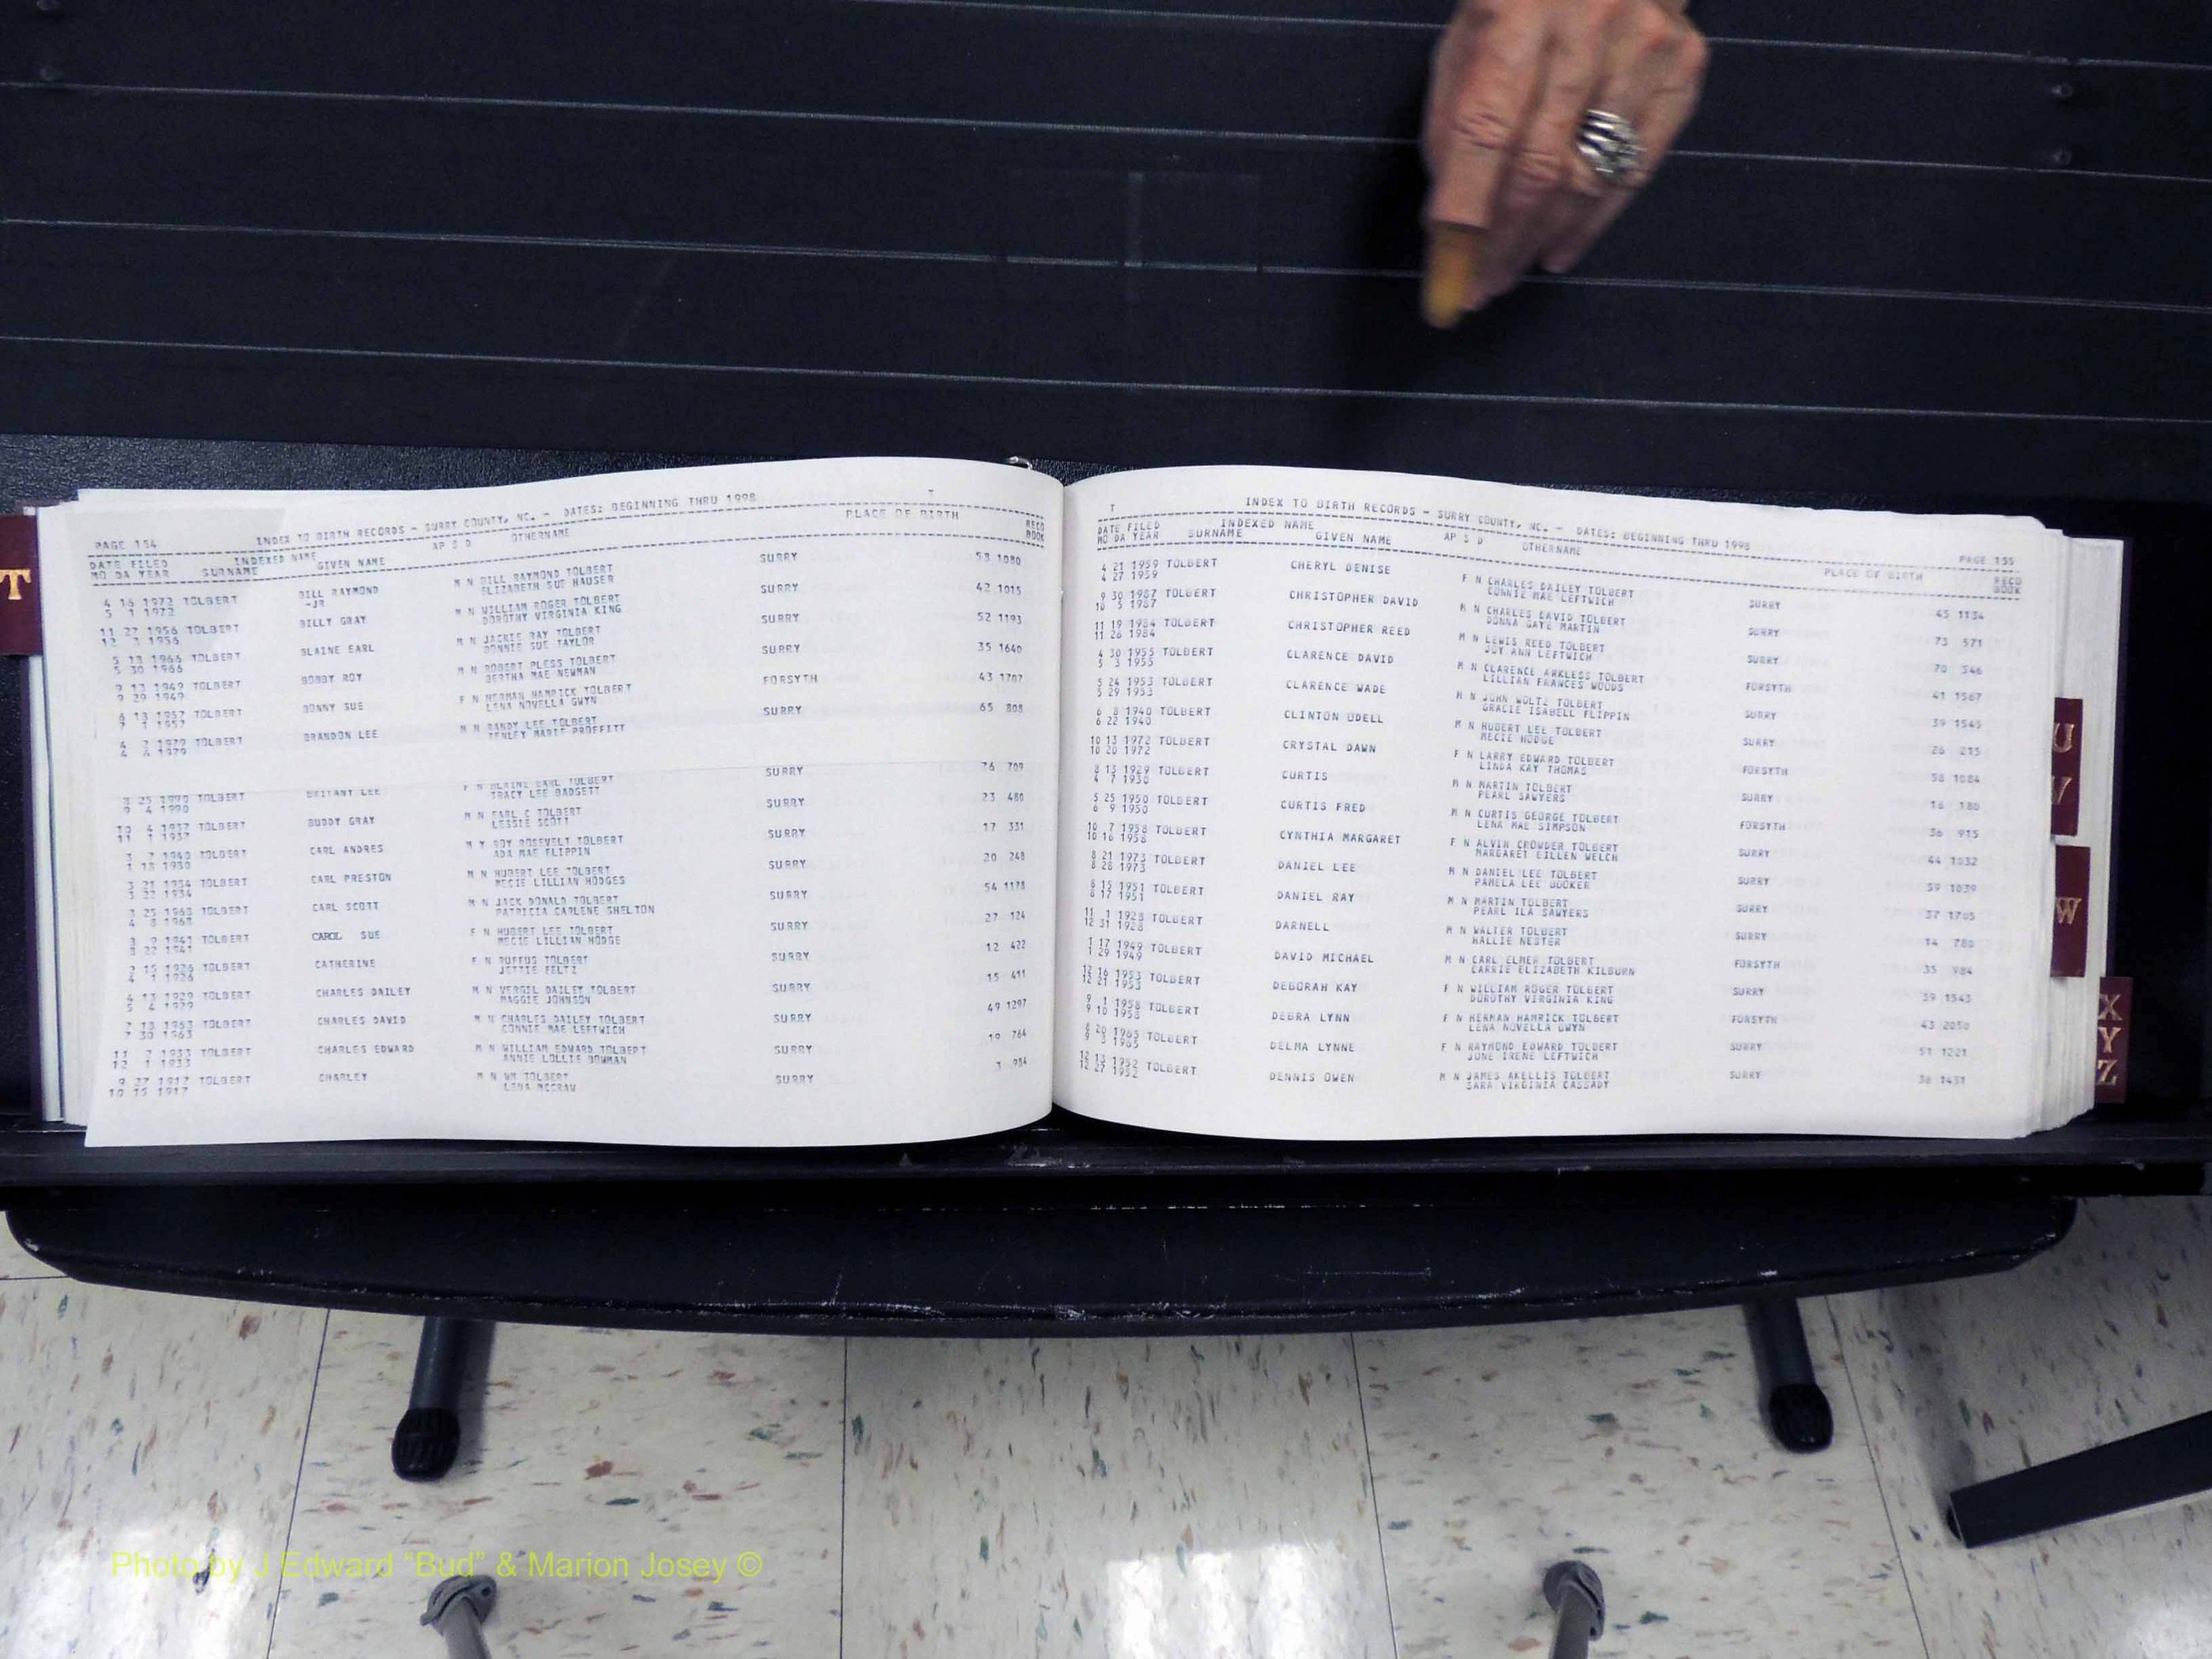 T
PAGE 154 INDEX TO BIRTH RECORDS - SURRY COUNTY, NC. - DATES: BEGINNING THRU 1998 T
DATE FILED INDEXED NAME AP S D OTHERNAME PLACE OF BIRTH RECO
MO DA YEAR SURNAME GIVEN NAME BOOK
4 16 1972 TOLBERT BILL RAYMOND M N BILL RAYMOND TOLBERT SURRY 58 1080
5 1 1972 -JR ELIZABETH SUE HAUSER
11 27 1956 TOLBERT BILLY GRAY M N WILLIAM ROGER TOLBERT SURRY 42 1015
12 3 1956 DOROTHY VIRGINIA KING
5 13 1966 TOLBERT BLAINE EARL M N JACKIE RAY TOLBERT SURRY 52 1193
5 30 1966 BONNIE SUE TAYLOR
9 13 1949 TOLBERT BOBBY ROY M N ROBERT PLESS TOLBERT SURRY 35 1640
9 29 1949 BERTHA MAE NEWMAN
6 13 1957 TOLBERT BONNY SUE F N HERMAN HAMRICK TOLBERT FORSYTH 43 1707
7 1 1957 LENA NOVELLA GWYN
4 2 1979 TOLBERT BRANDON LEE M N RANDY LEE TOLBERT SURRY 65 808
4 1979 TENLEY MARIE PROFFITT
8 25 1990 TOLBERT BRITANY LEE F N BLAINE EARL TOLBERT SURRY 76 709
9 4 1990 TRACY LEE BADGETT
10 4 1937 TOLBERT BUDDY GRAY M N EARL C TOLBERT SURRY 23 480
11 1 1937 LESSIE SCOTT
TOLBERT CARL ANDRES M Y ROY ROSEVELT TOLBERT SURRY 17 331
ADA MAE FLIPPIN
3 21 1934 TOLBERT CARL PRESTON M N HUBERT LEE TOLBERT SURRY 20 248
3 22 1934 MECIE LILLIAN HODGES
3 25 1968 TOLBERT CARL SCOTT M N JACK DONALD TOLBERT SURRY 54 1178
4 8 1968 PATRICIA CARLENE SHELTON
3 9 1941 TOLBERT CAROL SUE F N HUBERT LEE TOLBERT SURRY 27 124
3 22 1941 MECIE LILLIAN HODGE
2 15 1926 TOLBERT CATHERINE F N RUFFUS TOLBERT SURRY 12 422
4 1 1926 JETTIE FELTZ
4 13 1929 TOLBERT CHARLES DAILEY M N VERGIL DAILEY TOLBERT SURRY 15 411
5 4 1929 MAGGIE JOHNSON
7 18 1963 TOLBERT CHARLES DAVID M N CHARLES DAILEY TOLBERT SURRY 49 1207
7 30 1963 CONNIE MAE LEFTWICH
11 7 1933 TOLBERT CHARLES EDWARD M N WILLIAM EDWARD TOLBERT SURRY 19 764
12 1 1933 ANNIE LOLLIE BOWMAN
9 27 1917 TOLBERT CHARLEY M N WM TOLBERT SURRY 3 954
10 15 1917 LENA MCCRAW
T INDEX TO BIRTH RECORDS - SURRY COUNTY, NC. - DATES: BEGINNING THRU 1998 PAGE 155
DATE FILED INDEXED NAME AP S D OTHERNAME PLACE OF BIRTH RECO
MO DA YEAR SURNAME GIVEN NAME BOOK
4 21 1959 TOLBERT CHERYL DENISE F N CHARLES DAILEY TOLBERT SURRY 45 1134
4 27 1959 CONNIE MAE LEFTWICH
9 30 1987 TOLBERT CHRISTOPHER DAVID M N CHARLES DAVID TOLBERT SURRY 73 571
10 5 1987 DONNA GAYE MARTIN
11 19 1984 TOLBERT CHRISTOPHER REED M N LEWIS REED TOLBERT SURRY 70 546
11 26 1984 JOY ANN LEFTWICH
4 30 1955 TOLBERT CLARENCE DAVID M N CLARENCE ARKLESS TOLBERT FORSYTH 41 1567
5 3 1955 LILLIAN FRANCES WOODS
5 24 1953 TOLBERT CLARENCE WADE M N JOHN WOLTZ TOLBERT SURRY 39 1545
5 29 1953 GRACIE ISABELL FLIPPIN
6 8 1940 TOLBERT CLINTON ODELL M N HUBERT LEE TOLBERT SURRY 26 215
6 22 1940 MECIE HODGE
10 13 1972 TOLBERT CRYSTAL DAWN F N LARRY EDWARD TOLBERT FORSYTH 58 1084
10 20 1972 LINDA KAY THOMAS
8 13 1929 TOLBERT CURTIS M N MARTIN TOLBERT SURRY 16 180
4 7 1930 PEARL SAWYERS
5 25 1950 TOLBERT CURTIS FRED M N CURTIS GEORGE TOLBERT FORSYTH 36 915
6 9 1950 LENA MAE SIMPSON
10 7 1958 TOLBERT CYNTHIA MARGARET F N ALVIN CROWDER TOLBERT SURRY 44 1032
10 16 1958 MARGARET EILLEN WELCH
8 21 1973 TOLBERT DANIEL LEE M N DANIEL LEE TOLBERT SURRY 59 1039
8 28 1973 PAMELA LEE BOOKER
6 15 1951 TOLBERT DANIEL RAY M N MARTIN TOLBERT SURRY 37 1705
6 17 1951 PEARL ILA SAWYERS
11 1 1928 TOLBERT DARNELL M N WALTER TOLBERT SURRY 14 780
12 31 1928 HALLIE NESTER
1 17 1949 TOLBERT DAVID MICHAEL M N CARL ELMER TOLBERT FORSYTH 35 984
1 29 1949 CARRIE ELIZABETH KILBURN
12 16 1953 TOLBERT DEBORAH KAY F N WILLIAM ROGER TOLBERT SURRY 39 1543
12 21 1953 DOROTHY VIRGINIA KING
9 1 1958 TOLBERT DEBRA LYNN F N HERMAN HAMRICK TOLBERT FORSYTH 43 2050
9 10 1958 LENA NOVELLA GWYN
8 20 1965 TOLBERT DELMA LYNNE F N RAYMOND EDWARD TOLBERT SURRY 51 1221
9 3 1965 JUNE IRENE LEFTWICH
12 13 1952 TOLBERT DENNIS OWEN M N JAMES AKELLIS TOLBERT SURRY 38 1431
12 27 1952 SARA VIRGINIA CASSADY
U
V
W
X
Y
Z
Photo by J Edward “Bud” & Marion Josey ©